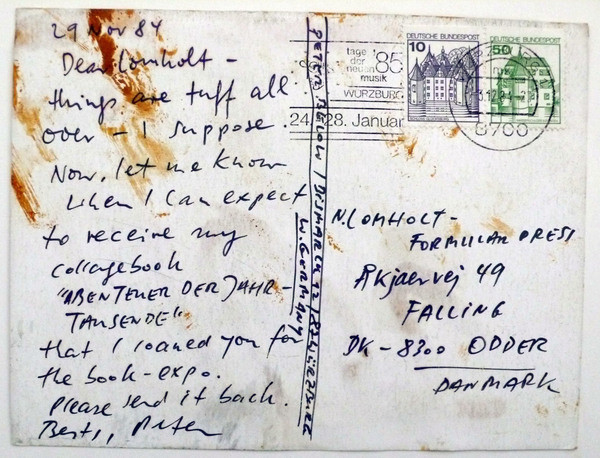 29 Nov 84
Dear Lomholt -
things are tuff all
over - I suppose.
Now, let me know
when I can expect
to receive my
collagebook
"ABENTEUER DER JAHR-
TAUSENDE"
that I loaned you for
the book-expo.
Please send it back.
Best, Peter
PETER BELOW / DISMARCK 12 / 87 WÜRZBURG
W. GERMANY
tage
der
neuen
musik
'85
WÜRZBURG
24. 28. Januar
DEUTSCHE BUNDESPOST
10
DEUTSCHE BUNDESPOST
50
8700
N. LOMHOLT -
FORMULAR PRESS
Åkjaervej 49
FALLING
DK - 8300 ODDER
DANMARK